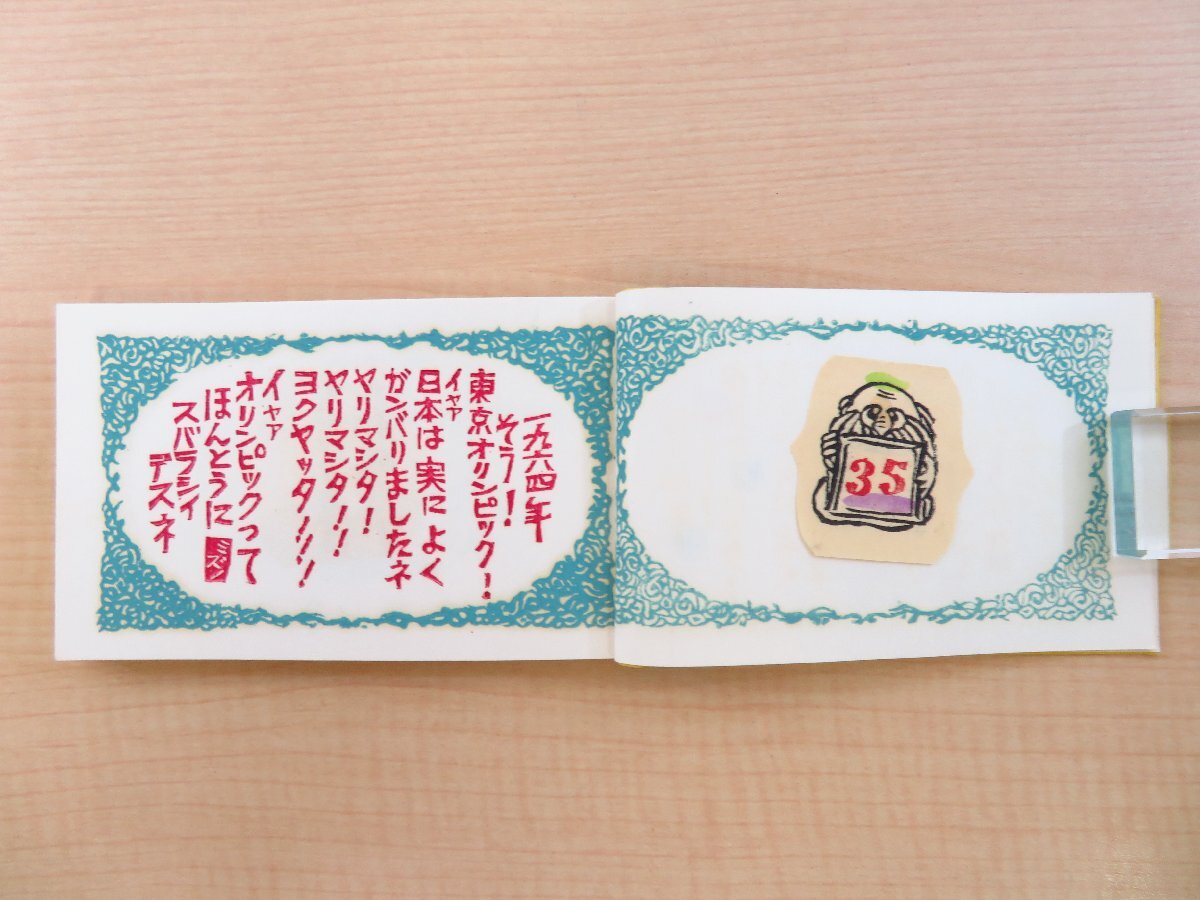 一九六四年
そう!
東京オリンピック!
イヤア
日本は実によく
ガンバリましたネ
ヤリマシタ!
ヤリマシタ!!
ヨクヤッタ!!!
イヤア
オリンピックって
ほんとうに
スバラシイ
デスネ
ミズン
35